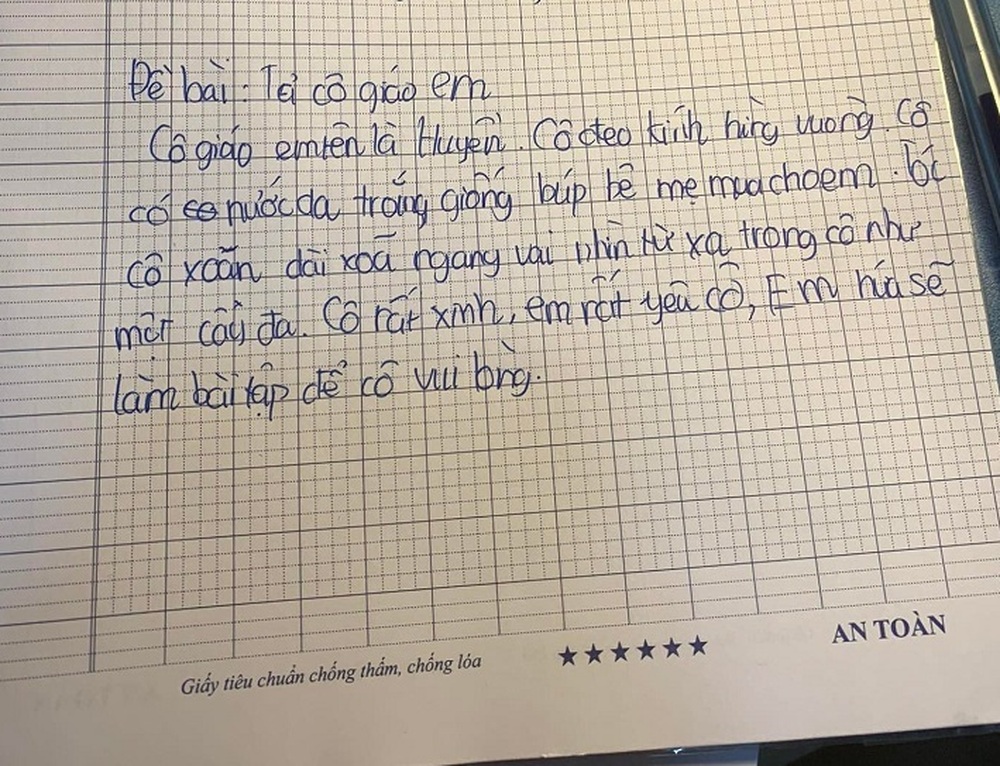 Đề bài: Tả cô giáo em
Cô giáo em tên là Huyền. Cô đeo kính hìng vuông. Cô
có nước da trắng giống búp bê mẹ mua cho em. Tóc
cô xoăn dài xoã ngang vai nhìn từ xa trong cô như
một cây đa. Cô rất xinh, em rất yêu cô, Em hứa sẽ
làm bài tập để cô vui lòng.
Giấy tiêu chuẩn chống thấm, chống lóa
★★★★★★
AN TOÀN